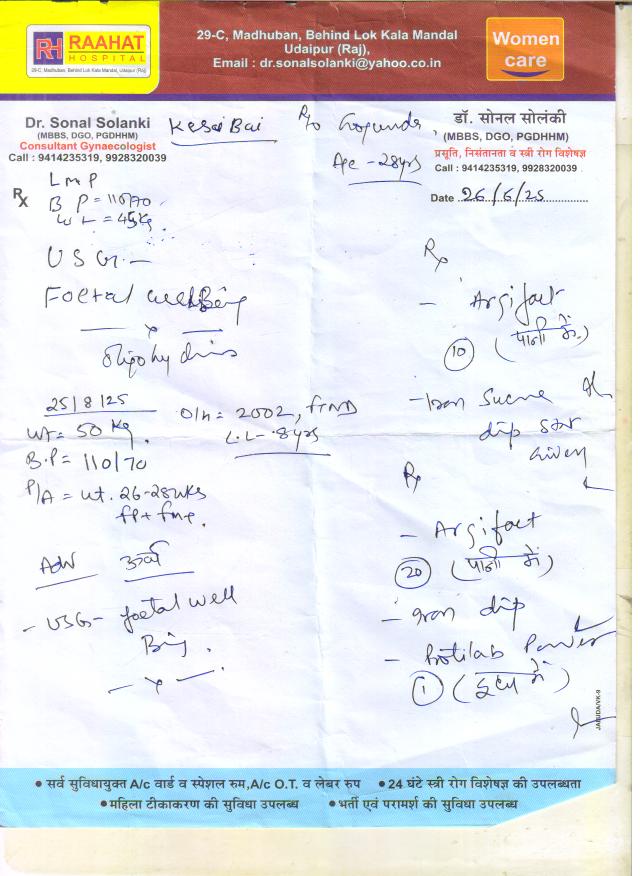 RH RAAHAT
HOSPITAL
29-C, Madhuban, Behind Lok Kala Mandal, Udaipur (Raj)
29-C, Madhuban, Behind Lok Kala Mandal
Udaipur (Raj),
Email : dr.sonalsolanki@yahoo.co.in
Women
care
Dr. Sonal Solanki
(MBBS, DGO, PGDHHM)
Consultant Gynaecologist
Call : 9414235319, 9928320039
Kesai Bai
R/o Gogunda,
Age - 28yrs
डॉ. सोनल सोलंकी
(MBBS, DGO, PGDHHM)
प्रसूति, निसंतानता व स्त्री रोग विशेषज्ञ
Call : 9414235319, 9928320039
Date 26/6/25
Rx
LMP
BP = 110/70
wt. = 45kg.
USG:-
Foetal well Being
x
Oligohydr
Rx
- Argifact
10 (पानी में)
- Iron Sucrose
dip
given
25/8/25
wt = 50 kg.
B.P = 110/70
P/A = ut. 26-28wks
O/H = 2002, FTND
L.L - 8yrs
Adv
- USG - foetal well
Being.
- x -
Rx
- Argifact
20 (पानी में)
- Iron dip
- Protilab Power
1 (दूध में)
JARUDA/VK-9
• सर्व सुविधायुक्त A/c वार्ड व स्पेशल रुम,A/c O.T. व लेबर रुप • 24 घंटे स्त्री रोग विशेषज्ञ की उपलब्धता
• महिला टीकाकरण की सुविधा उपलब्ध • भर्ती एवं परामर्श की सुविधा उपलब्ध